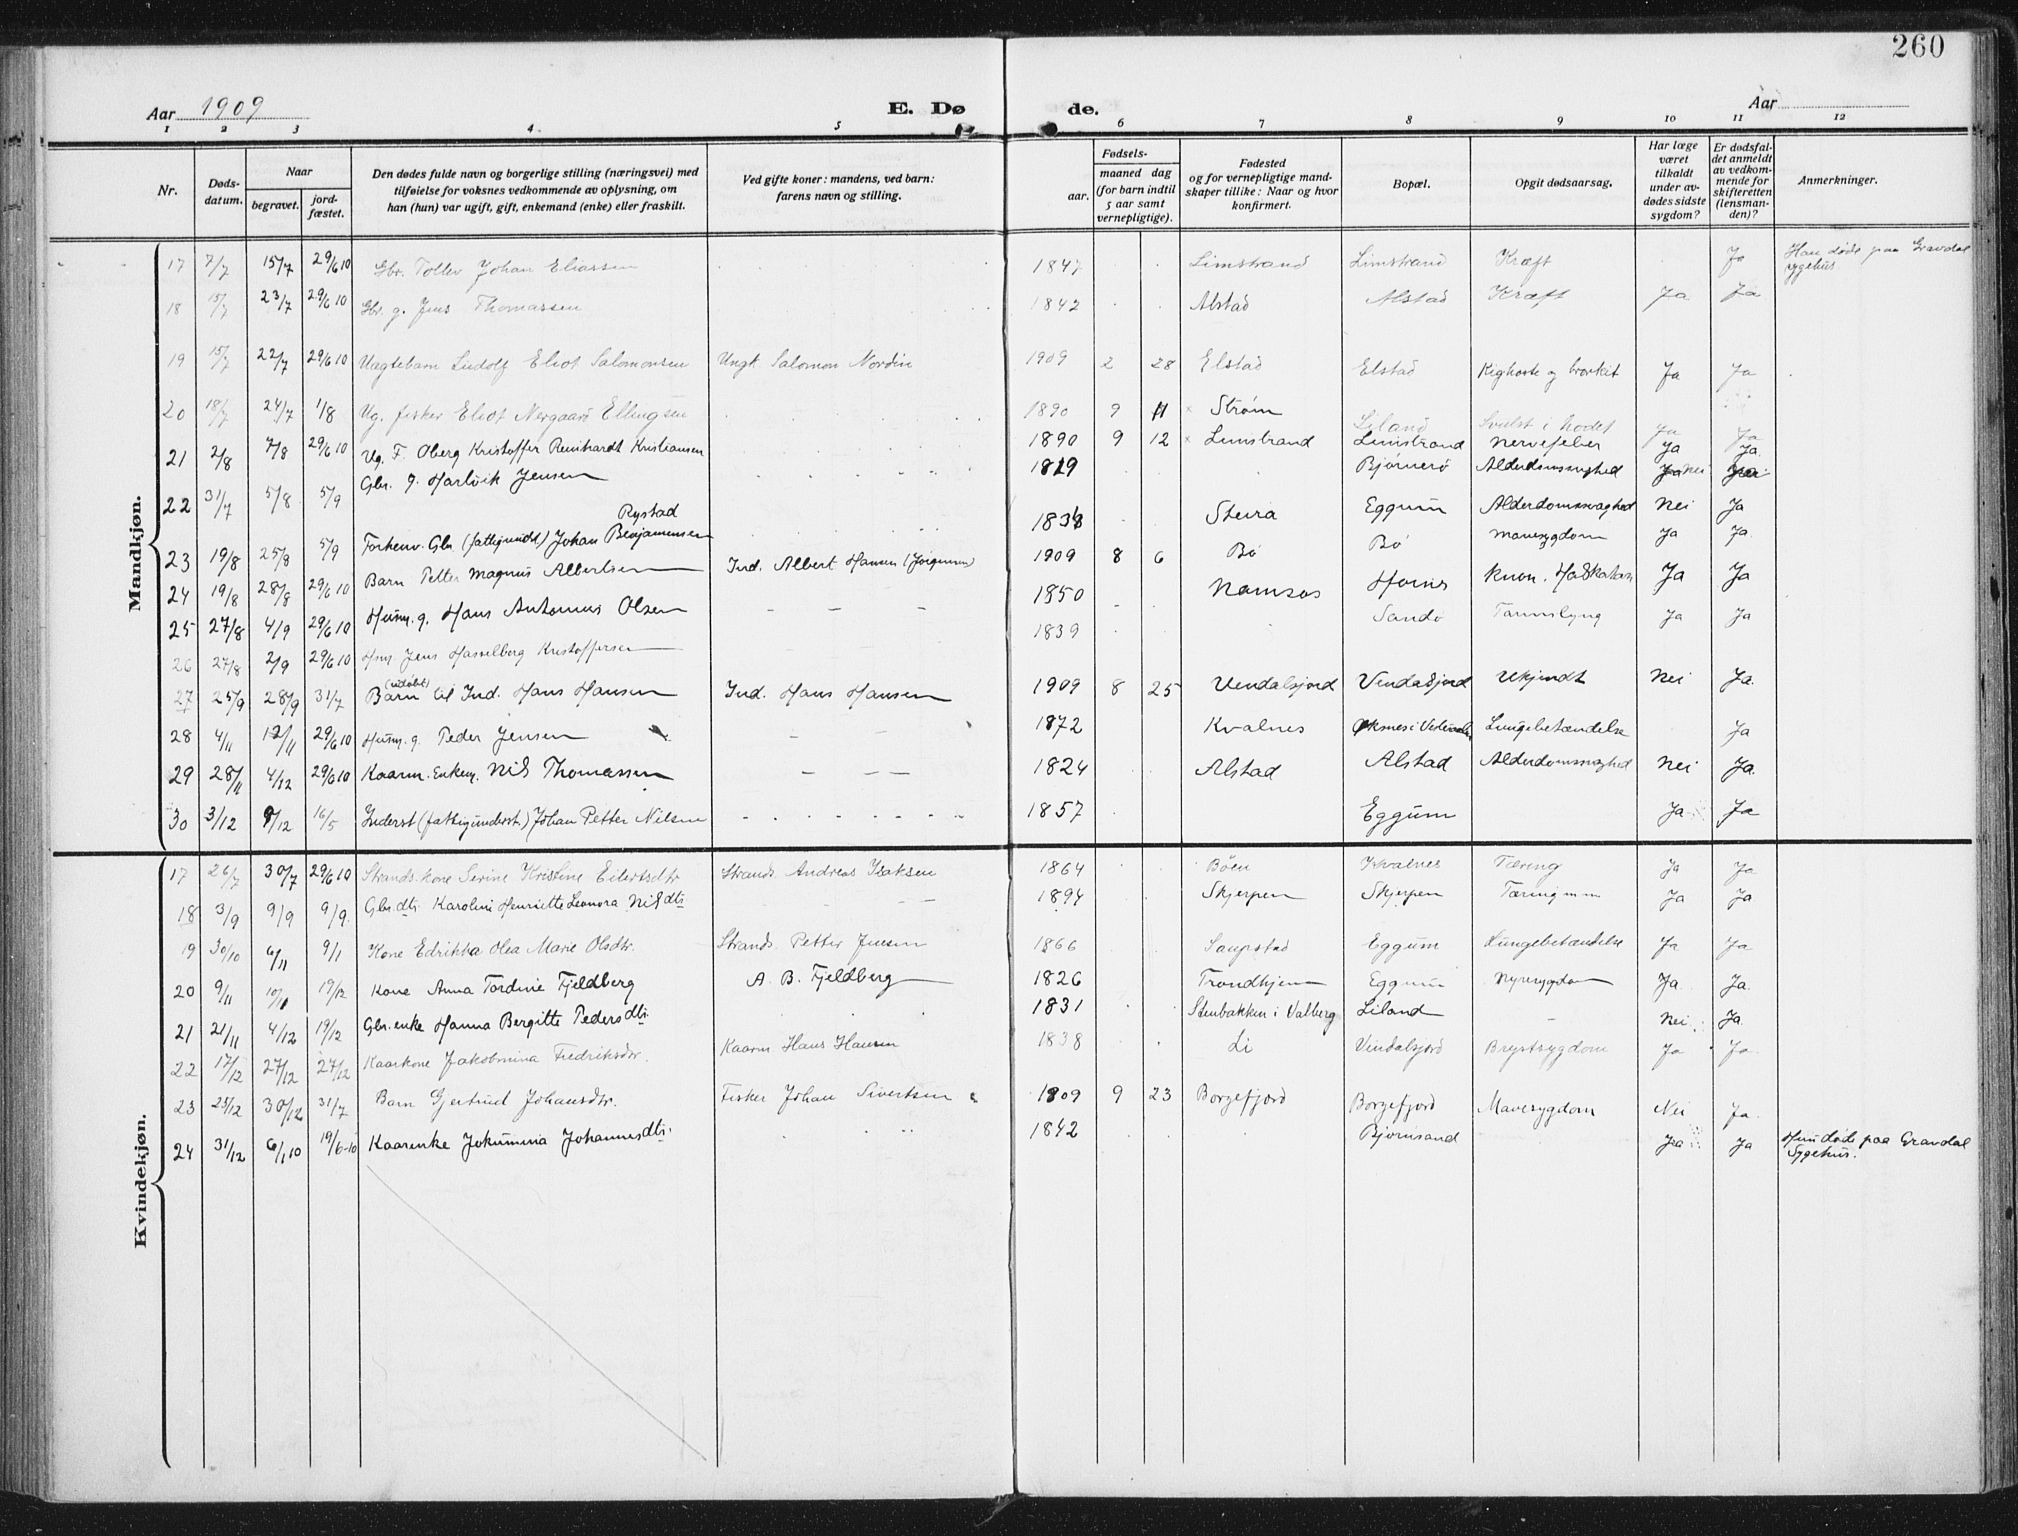 260
Aar 1909 E. Døde. Aar
1 2 3 4 5 6 7 8 9 10 11 12
Nr.
Døds-
datum.
Naar
begravet.
jord-
fæstet.
Den dødes fulde navn og borgerlige stilling (næringsvei) med
tilføielse for voksnes vedkommende av oplysning, om
han (hun) var ugift, gift, enkemand (enke) eller fraskilt.
Ved gifte koner: mandens, ved barn:
farens navn og stilling.
Fødsels-
aar.
maaned dag
(for barn indtil
5 aar samt
vernepligtige).
Fødested
og for vernepligtige mand-
skaper tillike: Naar og hvor
konfirmert.
Bopæl.
Opgit dødsaarsag.
Har læge
været
tilkaldt
under av-
dødes sidste
sygdom?
Er dødsfal-
det anmeldt
av vedkom-
mende for
skifteretten
(lensman-
den)?
Anmerkninger.
Mandkjøn.
17 7/7 15/7 29/6 10 Gbr. Tollev Johan Eliassen 1847 Limstrand Limstrand Kræft Ja Han døde paa Gravdal
sygehus
18 15/7 23/7 29/6 10 Gbr. g. Jens Thomassen 1842 Alstad Alstad Kræft Ja Ja
19 15/7 22/7 29/6 10 Uægtebarn Ludolf Eliot Salomonsen Ungk. Salomon Nordin 1909 2 28 Elstad Elstad Kighoste og bronkit Ja Ja
20 18/7 24/7 1/8 Ug. fisker Eliot Nergaard Ellingsen 1890 9 11 Strøm Liland Svulst i hodet Ja Ja
21 2/8 7/8 29/6 10 Ug. F. Oberg Kristoffer Reinhardt Kristiansen 1890 9 12 Limstrand Limstrand Nervefeber Ja Ja
22 31/7 5/8 5/9 Gbr. g. Hartvik Jensen 1819 Bjørnerø Alderdomssvaghed Nei
Rystad
23 19/8 25/8 5/9 Forhenv. Gbr. (fattigundst.) Johan Benjaminsen 1838 Steira Eggum Alderdomssvaghed Nei Ja
24 19/8 28/8 29/6 10 Barn Petter Magnus Albertsen Ind. Albert Hansen 1909 8 6 Bø Bø Mavesygdom Ja Ja
25 27/8 4/9 29/6 10 Husm. g. Hans Antonius Olsen 1850 Namsos Hornes Kron. Ja Ja
26 27/8 2/9 29/6 10 Hsm. Jens Hasselberg Kristoffersen 1839 Sandø Tarmslyng Ja Ja
27 25/9 28/9 31/7 Barn (udøbt) til Ind. Hans Hansen Ind. Hans Hansen 1909 8 25 Vendalsjord Vendalsjord Ukjendt Nei Ja
28 4/11 12/11 29/6 10 Husm. g. Peder Jensen 1872 Kvalnes Lungebetændelse Ja
29 28/11 4/12 29/6 10 Kaarm. Enkem. Nils Thomassen 1824 Alstad Alstad Alderdomssvaghed Nei Ja
30 3/12 9/12 16/5 Inderst (fattigunderst.) Johan Petter Nilsen 1857 Eggum Ja Ja
Kvindekjøn.
17 26/7 30/7 29/6 10 Strands. kone Serine Kristine Eilertsdtr Strands. Andreas Isaksen 1864 Bøen Kvalnes Tæring Ja Ja
18 3/9 9/9 9/9. Gbr. dtr. Karoline Henriette Leonora Nilsdtr 1894 Skjerpen Skjerpen Tæring Ja Ja
19 30/10 6/11 9/1 Kone Edrikka Olea Marie Olsdtr. Strands. Petter Jensen 1866 Saupstad Eggum Lungebetændelse Ja Ja
20 9/11 10/10 19/12 Kone Anna Tordine Fjeldberg A. B. Fjeldberg 1826 Trondhjem Eggum Nyresygdom Ja Ja
21 21/11 4/12 19/12 Gbr. enke Hanna Bergitte Pedersdtr. 1831 Stenbakken i Valberg Liland Nei Ja
22 17/12 27/12 27/12 Kaarkone Jakobmina Fredriksdtr. Kaarm Hans Hansen 1838 Li Vindalsjord Brystsygdom Ja Ja
23 25/12 30/12 31/7 Barn Gjertrud Johansdtr. Fisker Johan Sivertsen 1909 9 23 Borgefjord Borgefjord Mavesygdom Nei Ja
24 31/12 6/1 10 19/6-10 Kaarenke Jokumina Johannesdtr. 1842 Bjørnsand Ja Ja Hun døde paa Gravdal
Sygehus.